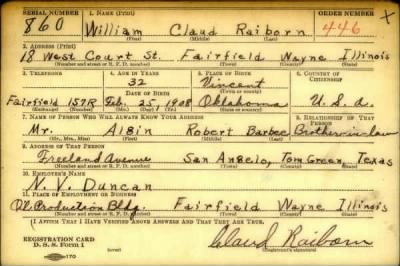 SERIAL NUMBER 1. NAME (Print) ORDER NUMBER
860 William Claud Raiborn 446 X
(First) (Middle) (Last)
2. ADDRESS (Print)
18 West Court St. Fairfield Wayne Illinois
(Number and street or R. F. D. number) (Town) (County) (State)
3. TELEPHONE 4. AGE IN YEARS 5. PLACE OF BIRTH 6. COUNTRY OF CITIZENSHIP
32 Vincent
DATE OF BIRTH (Town or county)
Fairfield 157R Feb. 25, 1908 Oklahoma U.S.a.
(Exchange) (Number) (Mo.) (Day) (Yr.) (State or country)
7. NAME OF PERSON WHO WILL ALWAYS KNOW YOUR ADDRESS 8. RELATIONSHIP OF THAT PERSON
Mr. Albin Robert Barbee Brother-in-law
(Mr., Mrs., Miss) (First) (Middle) (Last)
9. ADDRESS OF THAT PERSON
Freeland Avenue San Angelo, Tom Green, Texas
(Number and street or R. F. D. number) (Town) (County) (State)
10. EMPLOYER'S NAME
N. V. Duncan
11. PLACE OF EMPLOYMENT OR BUSINESS
Production Bldg. Fairfield Wayne Illinois
(Number and street or R. F. D. number) (Town) (County) (State)
I AFFIRM THAT I HAVE VERIFIED ABOVE ANSWERS AND THAT THEY ARE TRUE.
REGISTRATION CARD
D. S. S. Form 1
(over) Claud Raiborn
(Registrant's signature)